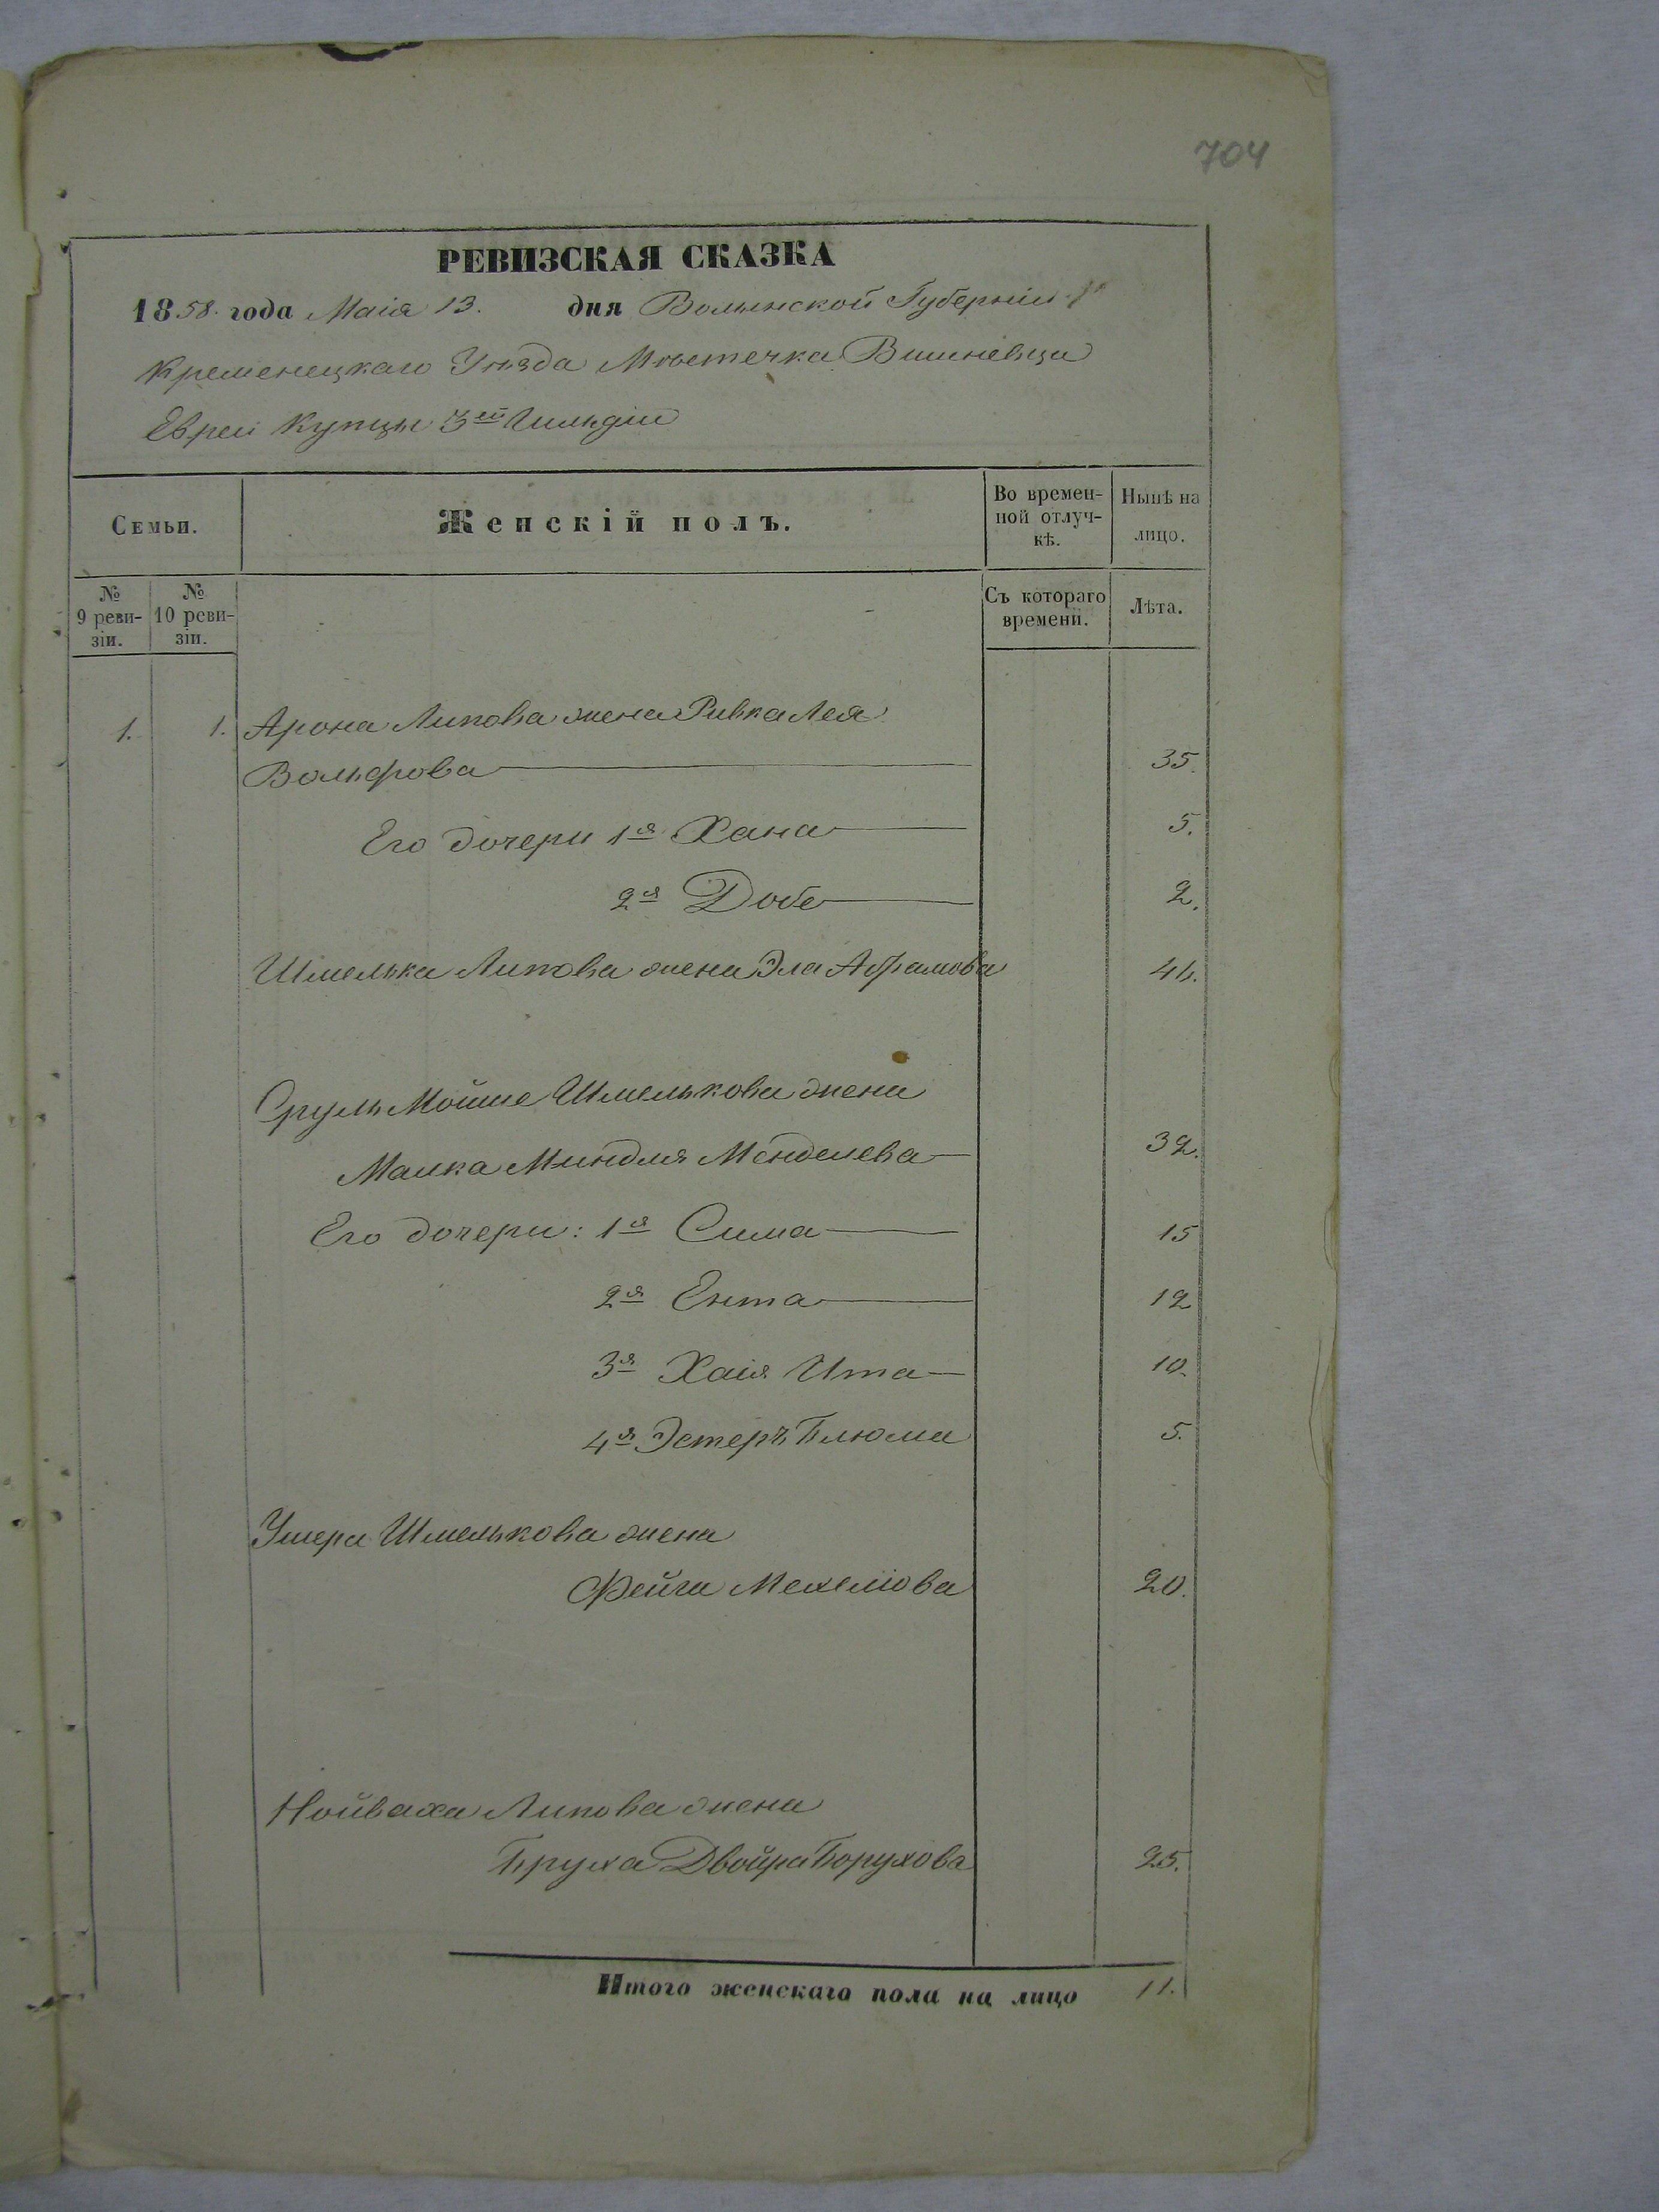 704
РЕВИЗСКАЯ СКАЗКА
1858. года Маія 13. дня Волынской Губерніи
Кременецкаго Уѣзда Мѣстечка Вишневца
Евреи Купцы 3ей Гильдіи
Семьи.
Женскій полъ.
Во времен-
ной отлуч-
кѣ.
Нынѣ на
лицо.
№
9 реви-
зіи.
№
10 реви-
зіи.
Съ котораго
времени.
Лѣта.
1. 1. Арона Липова жена Ривка Лея
Вольфова 35.
Его дочери 1я Хана 5.
2я Добе 2.
Шмелька Липова жена Эла Абрамова 44.
Сруль Мойше Шмелькова жена
Малка Миндля Менделева 32.
Его дочери: 1я Сима 15
2я Ента 12
3я Хаія Ита 10.
4я Эстеръ Блюма 5.
Ушера Шмелькова жена
Фейга Мехелiова 20.
Нойваха Липова жена
Бруха Двойра Борухова 25.
Итого женскаго пола на лицо 11.